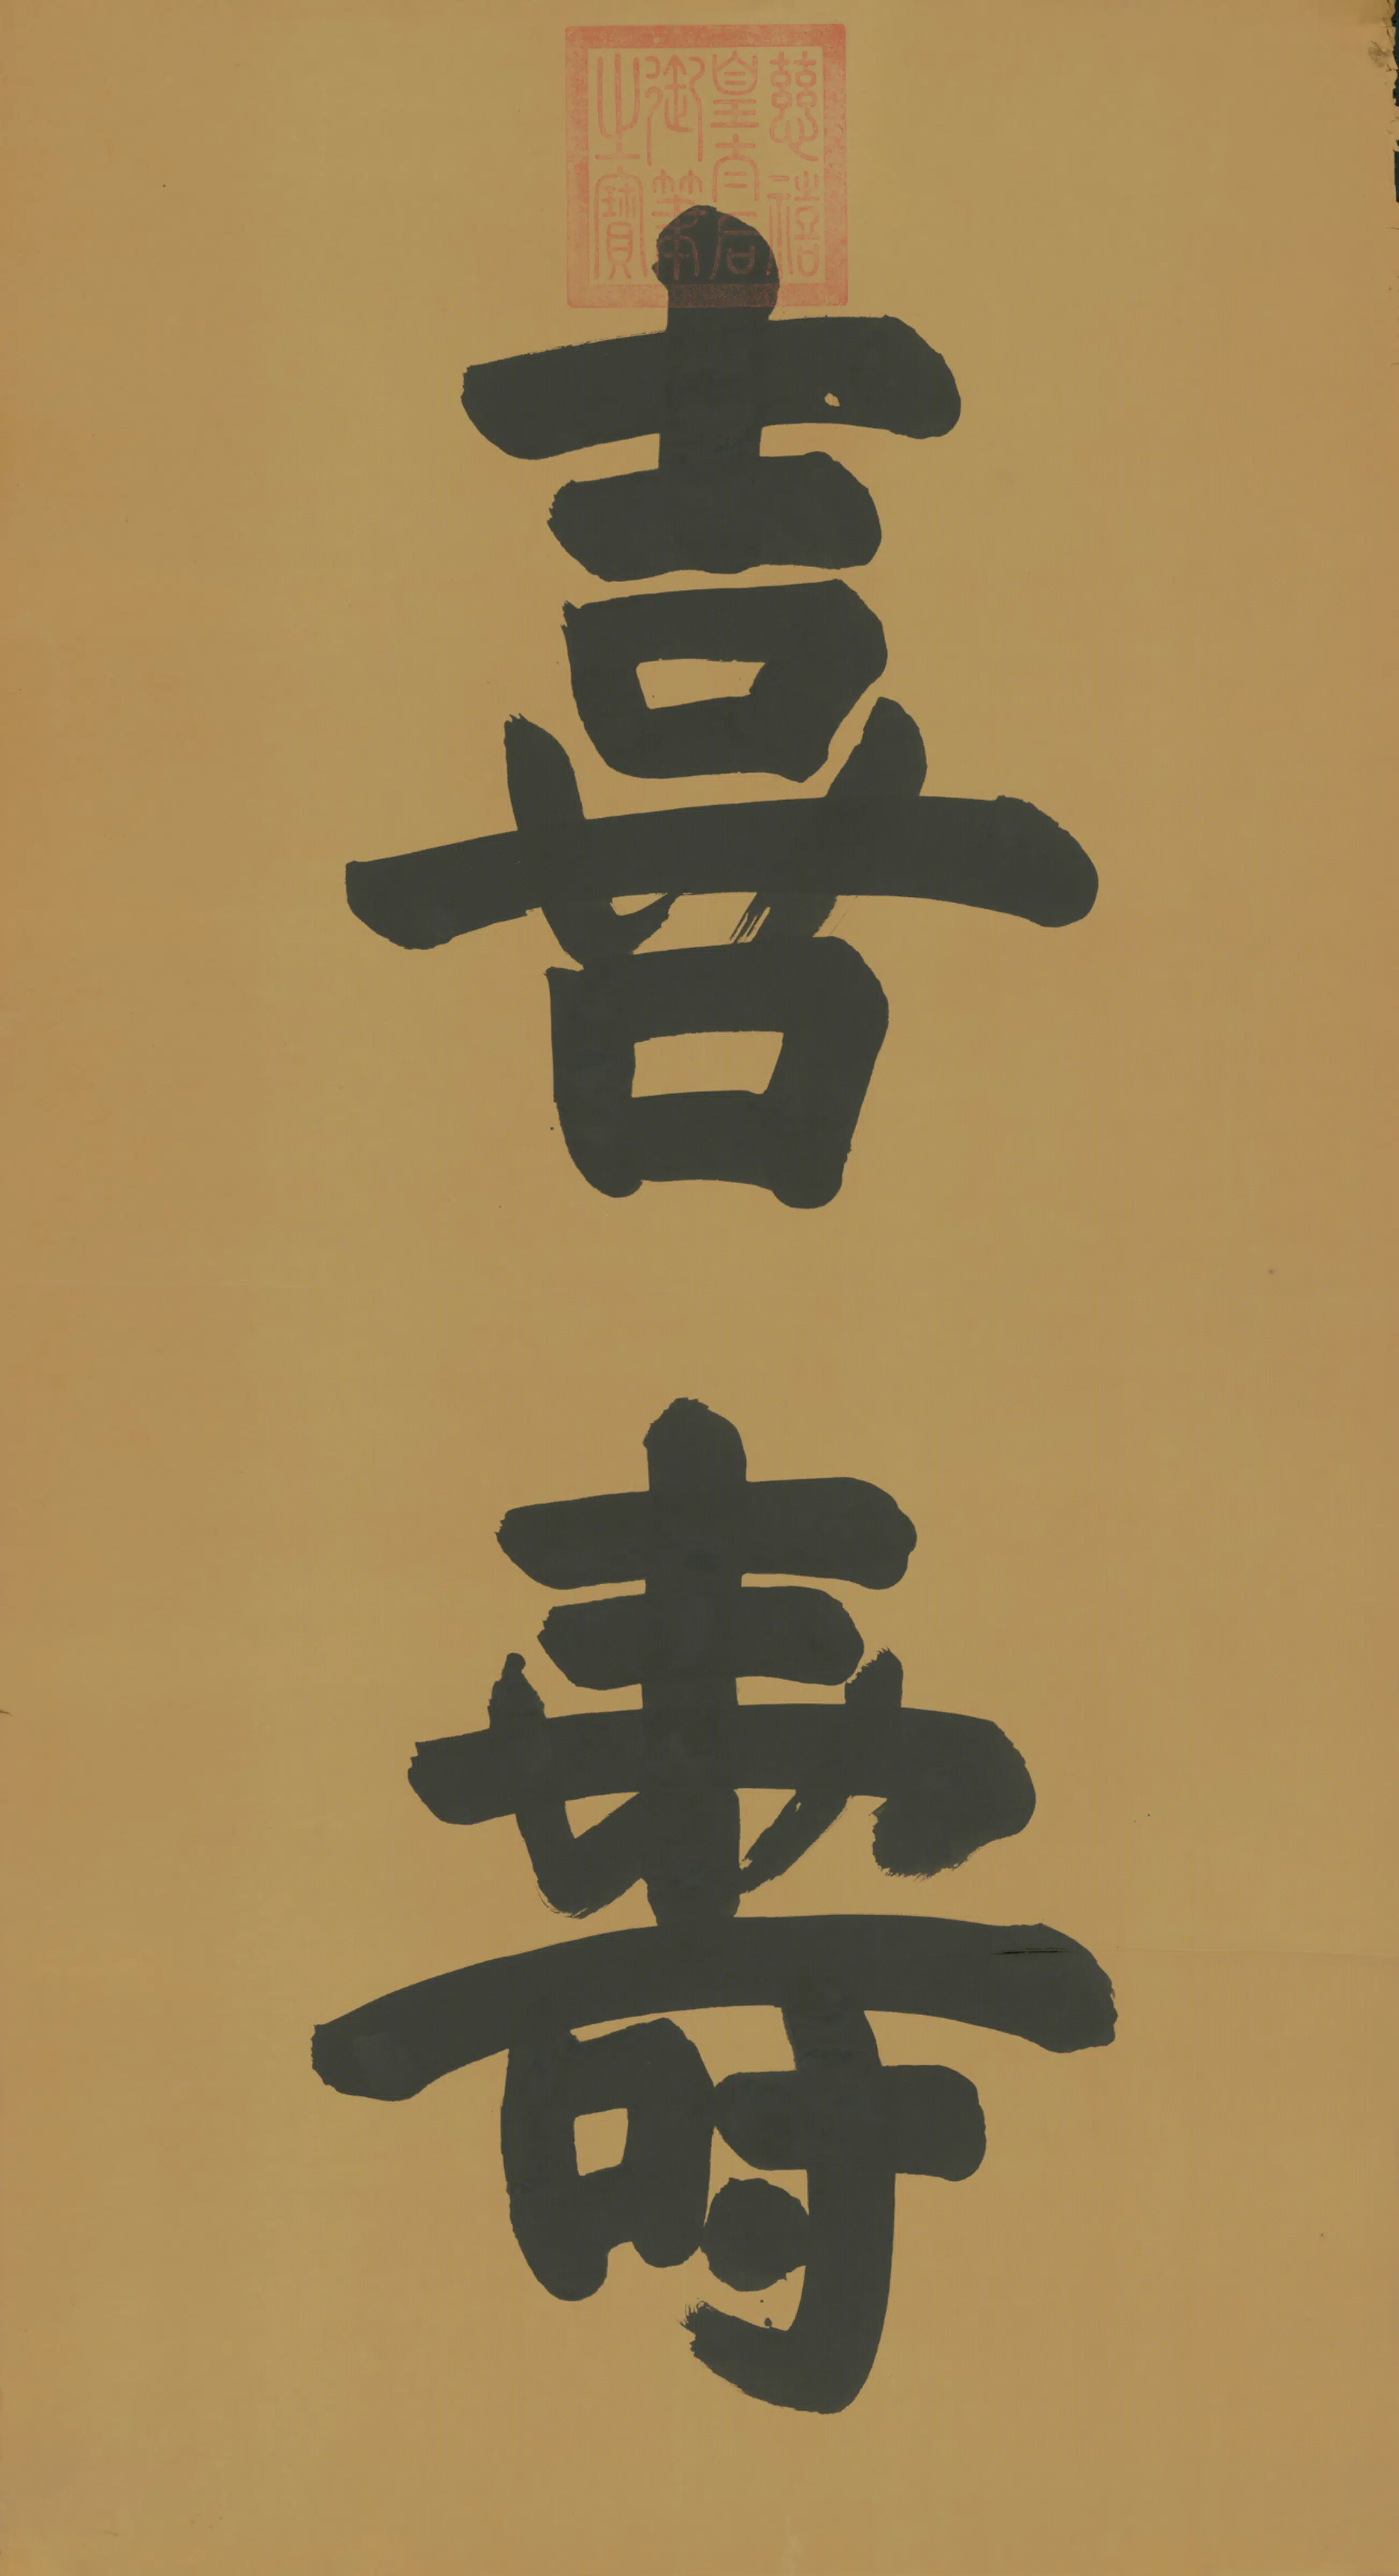 慈禧
皇太后
御筆
之寶
喜壽